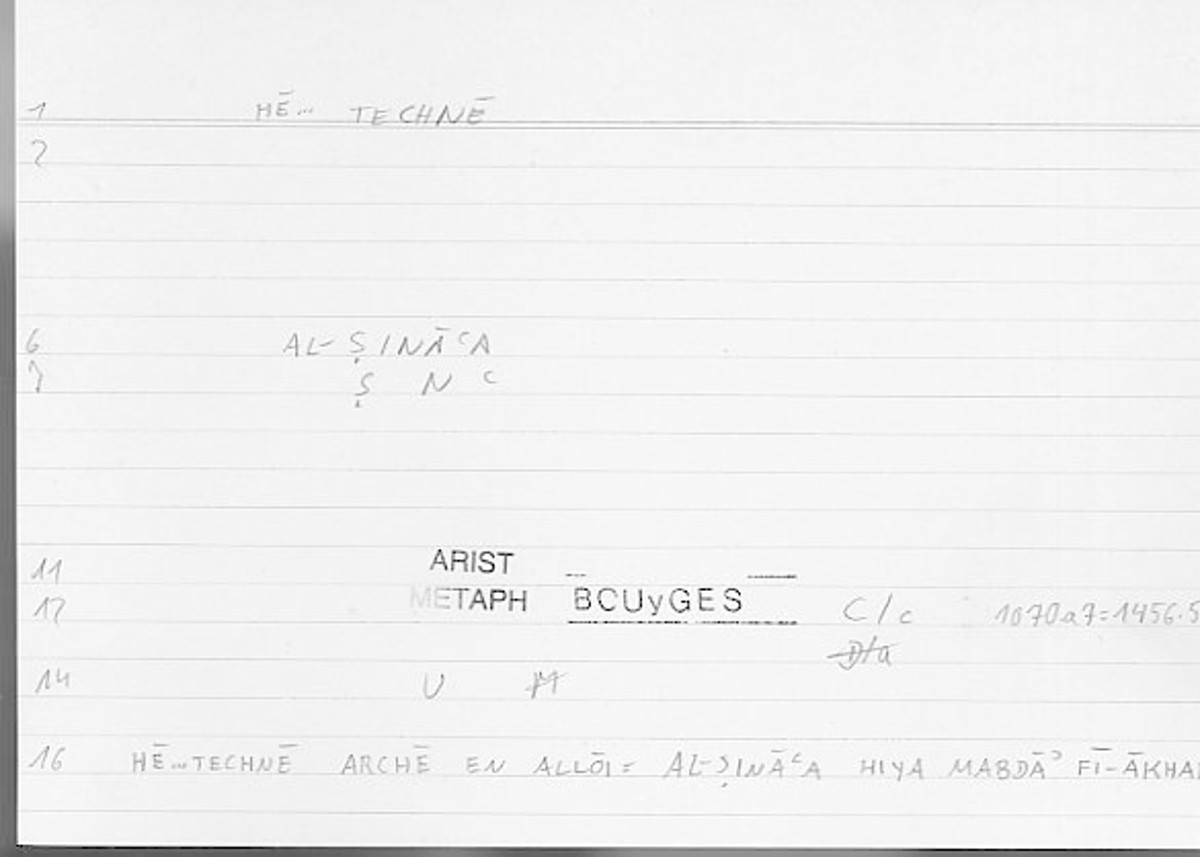 1 HĒ... TECHNĒ
2
6 AL-ṢINĀʿA
7 Ṣ N ʿ
11 ARIST
12 METAPH BCUyGES C/c 1070a7=1456.5
D/a
14 U M
16 HĒ...TECHNĒ ARCHĒ EN ALLŌI= AL-ṢINĀʿA HIYA MABDĀʾ FĪ-ĀKHA